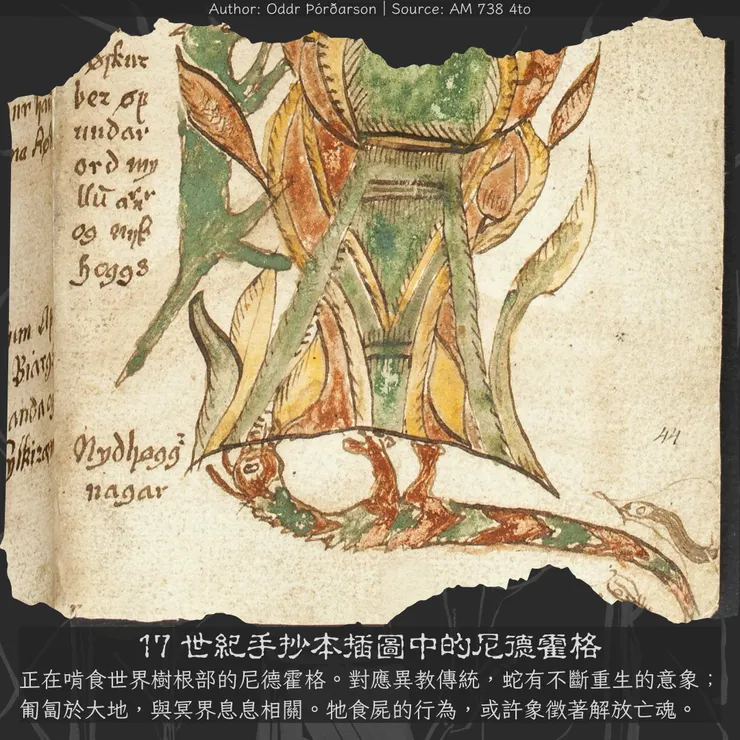 Author: Oddr Þórðarson | Source: AM 738 4to
ber øp
undar
ord my
og nyk
hoggs
Nydhøgg
nagar
44
17 世紀手抄本插圖中的尼德霍格
正在啃食世界樹根部的尼德霍格。對應異教傳統，蛇有不斷重生的意象；
匍匐於大地，與冥界息息相關。牠食屍的行為，或許象徵著解放亡魂。